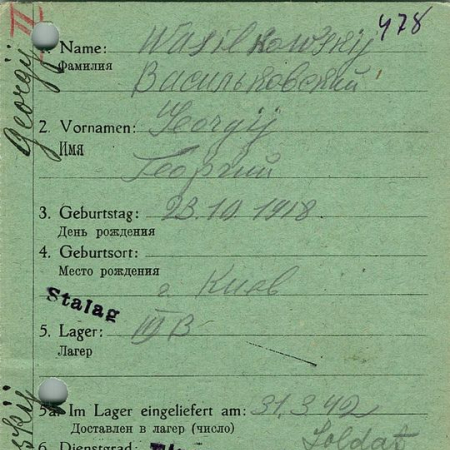 II
478
1. Name: Wasilkowskij
Фамилия Васильковский
2. Vornamen: Georgij
Имя Георгий
3. Geburtstag: 23.10.1918.
День рождения
4. Geburtsort:
Место рождения г. Киев
Stalag
5. Lager: III B
Лагер
5a. Im Lager eingeliefert am: 31.3.42
Доставлен в лагер (число)
6. Dienstgrad: Soldat
Georgij